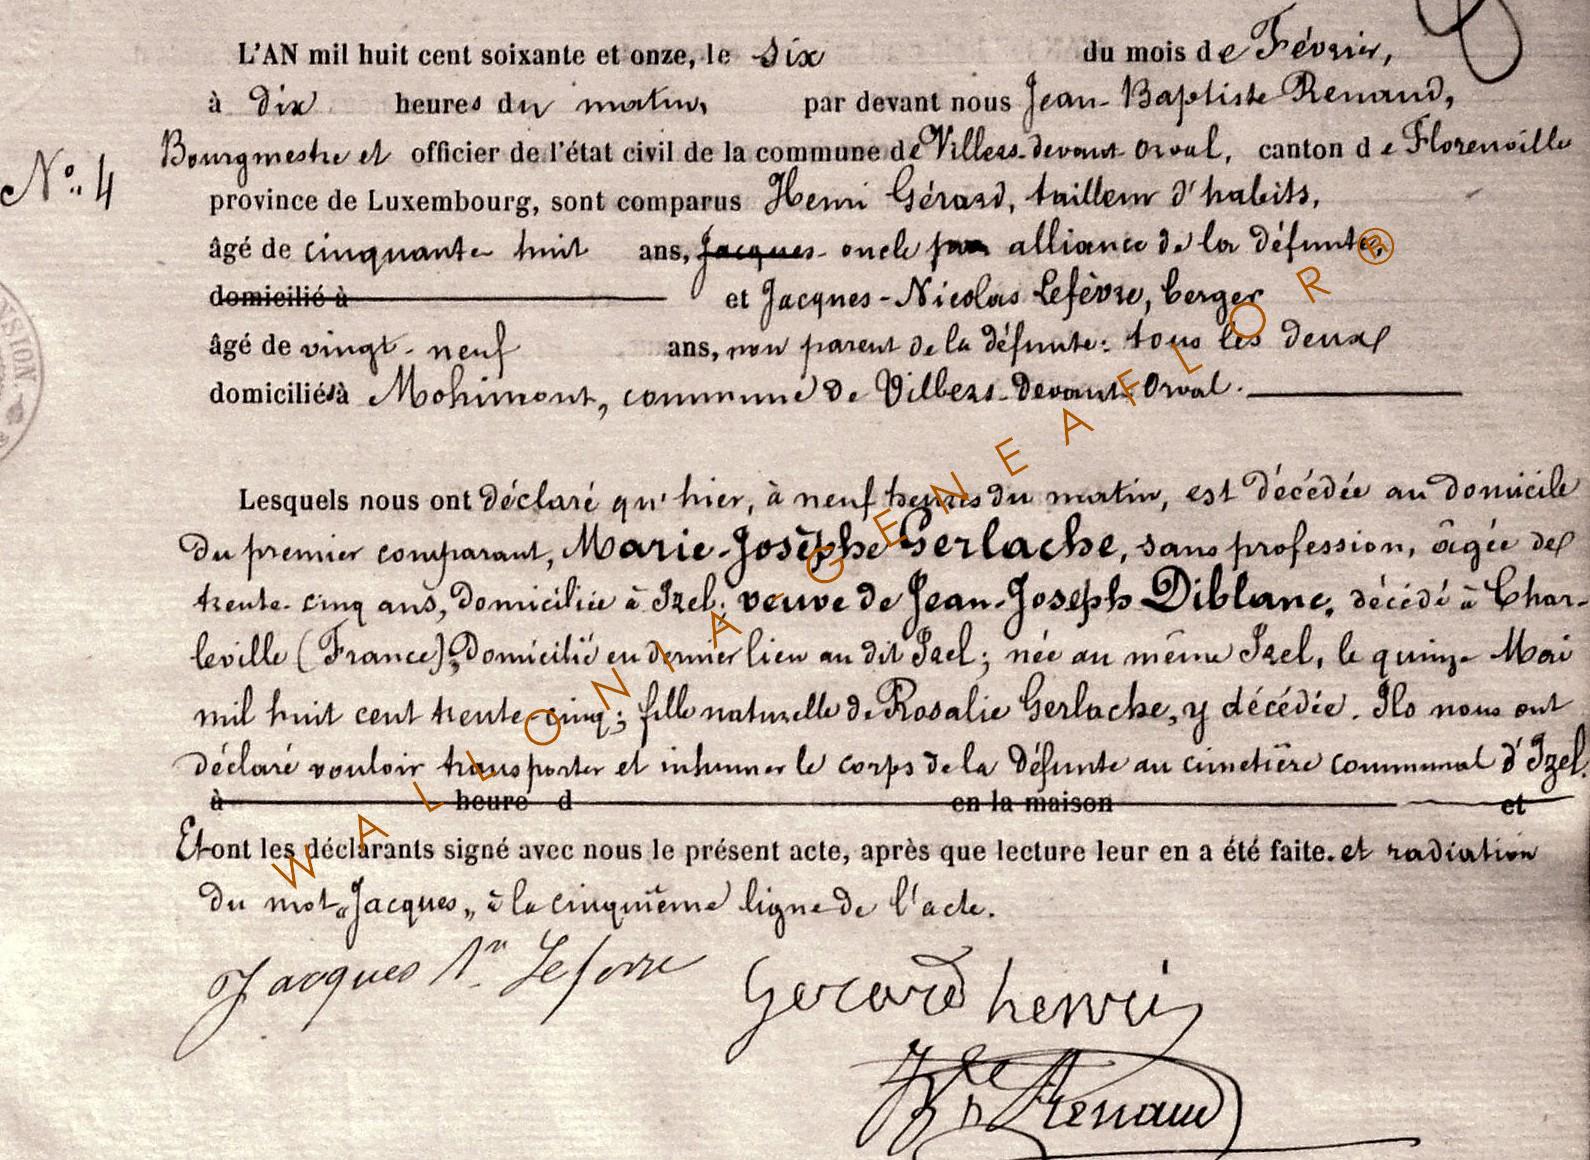 L'AN mil huit cent soixante et onze, le six du mois de Février,
à dix heures du matin, par devant nous Jean-Baptiste Renaud,
Bourgmestre et officier de l'état civil de la commune de Villers-devant-Orval, canton de Florenville
N° 4
province de Luxembourg, sont comparus Henri Gérard, tailleur d'habits,
âgé de cinquante-huit ans, Jacques oncle par alliance de la défunte,
domicilié à et Jacques-Nicolas Lefèvre, berger
âgé de vingt-neuf ans, non parent de la défunte: tous les deux
domiciliés à Mohimont, commune de Villers-devant-Orval.
Lesquels nous ont déclaré qu'hier, à neuf heures du matin, est décédée au domicile
du premier comparant, Marie-Josèphe Gerlache, sans profession, âgée de
trente-cinq ans, domiciliée à Izel; veuve de Jean-Joseph Diblanc, décédé à Char-
leville (France), domicilié en dernier lieu au dit Izel; née au même Izel, le quinze Mai
mil huit cent trente-cinq; fille naturelle de Rosalie Gerlache, y décédée. Ils nous ont
déclaré vouloir transporter et inhumer le corps de la défunte au cimetière communal d'Izel.
à heure d en la maison et
Et ont les déclarants signé avec nous le présent acte, après que lecture leur en a été faite. et radiation
du mot „Jacques„ à la cinquième ligne de l'acte.
Jacques Nas Lefevre Gerard henri
JBte Renaud
WALLONIA-GENEAFLOR®
NSION.